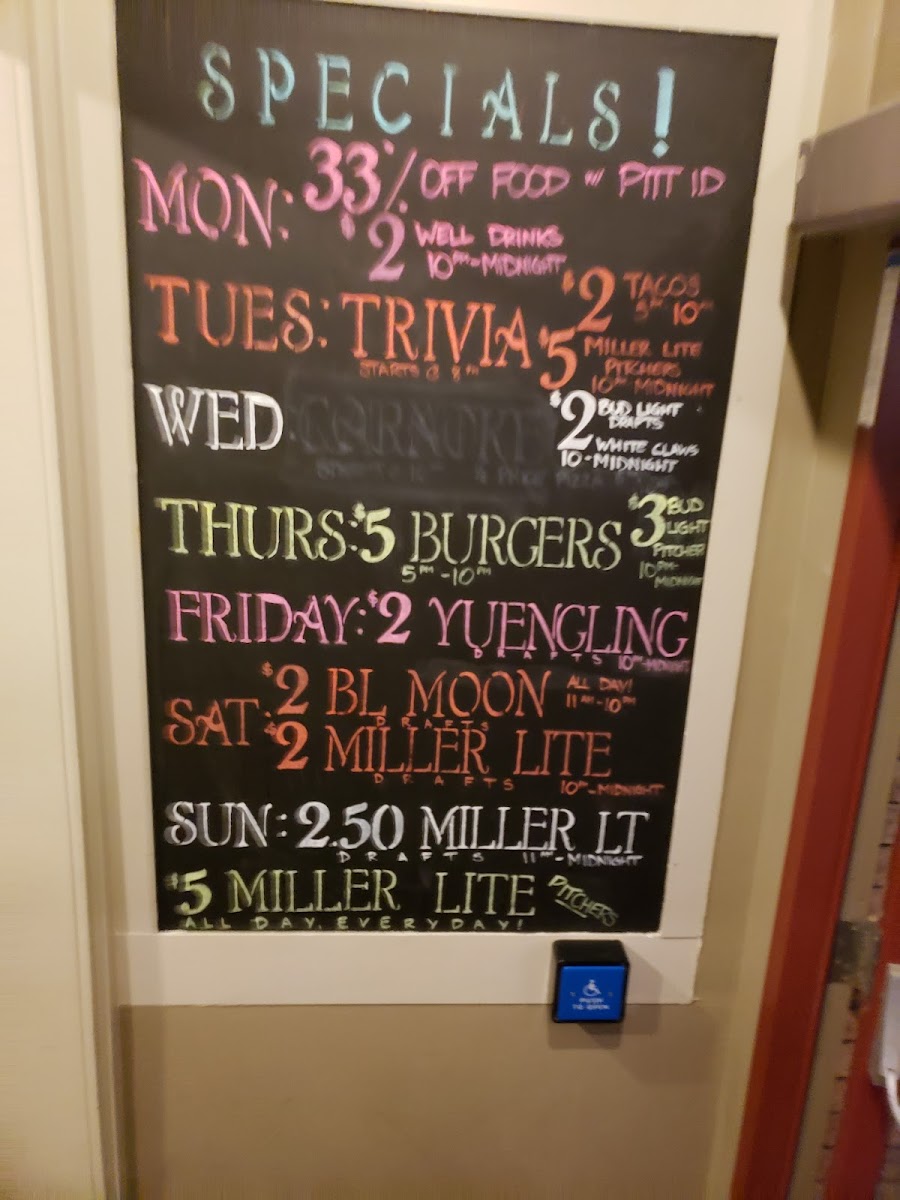 SPECIALS!
MON: 33% OFF FOOD W/ PITT ID
$2 WELL DRINKS
10PM-MIDNIGHT
TUES: TRIVIA
STARTS @ 8PM
$2 TACOS
5PM 10PM
$5 MILLER LITE
PITCHERS
10PM MIDNIGHT
WED
$2 BUD LIGHT
DRAFTS
WHITE CLAWS
10-MIDNIGHT
THURS: $5 BURGERS
5PM-10PM
$3 BUD
LIGHT
PITCHER
10PM-
MIDNIGHT
FRIDAY: $2 YUENGLING
DRAFTS 10PM-MIDNIGHT
SAT: $2 BL MOON ALL DAY!
DRAFTS 11AM-10PM
$2 MILLER LITE
DRAFTS 10PM-MIDNIGHT
SUN: 2.50 MILLER LT
DRAFTS 11AM-MIDNIGHT
$5 MILLER LITE PITCHERS
ALL DAY, EVERYDAY!
PUSH
TO OPEN